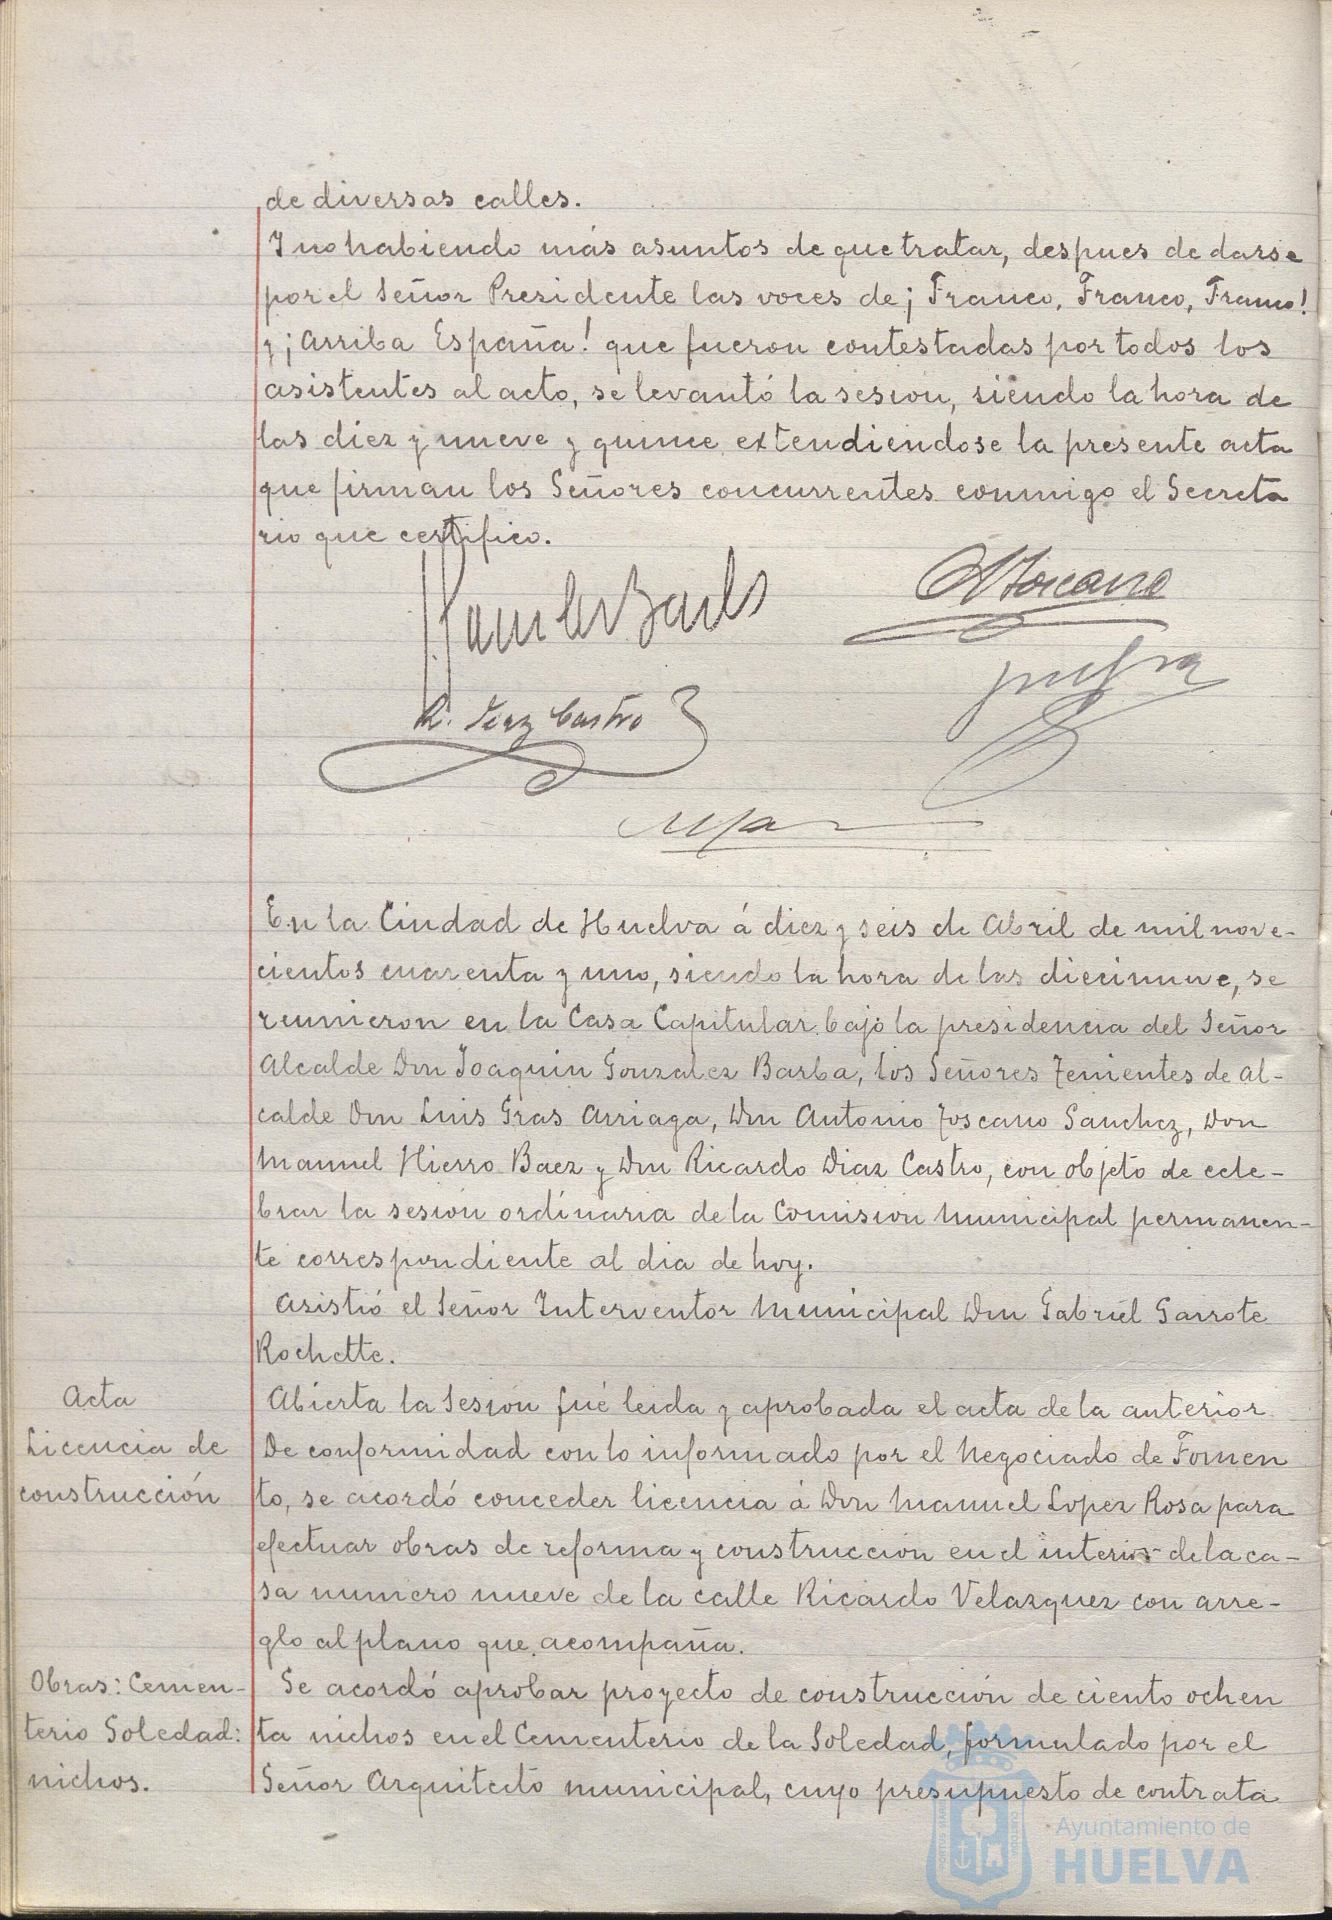 de diversas calles.
Y no habiendo más asuntos de que tratar, despues de darse
por el Señor Presidente las voces de ¡ Franco, Franco, Franco!
y ¡Arriba España! que fueron contestadas por todos los
asistentes al acto, se levantó la sesion, siendo la hora de
las diez y nueve y quince extendiendose la presente acta
que firman los Señores concurrentes conmigo el Secreta
rio que certifico.
A Toscano
R. Diaz Castro
En la Ciudad de Huelva á diez y seis de Abril de mil nove-
cientos cuarenta y uno, siendo la hora de las diecinueve, se
reunieron en la Casa Capitular bajo la presidencia del Señor
Alcalde Don Joaquin Gonzalez Barba, los Señores Tenientes de Al-
calde Don Luis Gras Arriaga, Don Antonio Toscano Sanchez, Don
Manuel Hierro Baez y Don Ricardo Diaz Castro, con objeto de cele-
brar la sesión ordinaria de la Comisión Municipal permanen-
te correspondiente al dia de hoy.
Asistió el Señor Interventor Municipal Don Gabriel Garrote
Rochette.
Acta
Abierta la Sesion fué leida y aprobada el acta de la anterior
Licencia de
De conformidad con lo informado por el Negociado de Fomen
construcción
to, se acordó conceder licencia á Don Manuel Lopez Rosa para
efectuar obras de reforma y construcción en el interior de la ca-
sa numero nueve de la calle Ricardo Velazquez con arre-
glo al plano que acompaña.
Obras: Cemen-
Se acordó aprobar proyecto de construcción de ciento ochen
terio Soledad:
ta nichos en el Cementerio de la Soledad, formulado por el
nichos.
Señor Arquitecto municipal, cuyo presupuesto de contrata
Ayuntamiento de
HUELVA